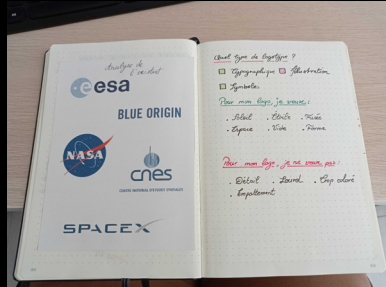 Analyse de
l'existant
esa
BLUE ORIGIN
NASA
cnes
CENTRE NATIONAL D'ÉTUDES SPATIALES
SPACEX
Quel type de logotype ?
Typographique Illustration
Symbole
Pour mon logo, je veux :
. Soleil . Étoile . Fusée
. Espace . Vide . Forme
Pour mon logo, je ne veux pas :
. Détail . Lourd . Trop coloré
. Empattement